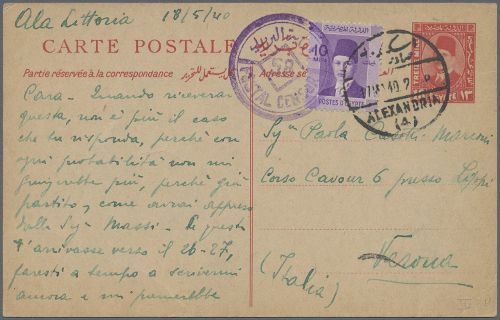 Ala Littoria 18/5/40
CARTE POSTALE
Partie réservée à la correspondance
Adresse se
POSTAL CENSOR
58
10
MILLS
POSTES D'EGYPTE
ALEXANDRIA
(4)
Cara - Quando riceverai
questa, non è più il caso
che tu risponda, perché con
ogni probabilità non mi
giungerebbe più, perché già
partito, come avrai appreso
dalla Sigª Massi - Se questa
t'arrivasse verso il 26-27,
faresti a tempo a scrivermi
ancora e mi
Sigª Paola
Corso Cavour 6 presso Lippi
Verona
(Italia)